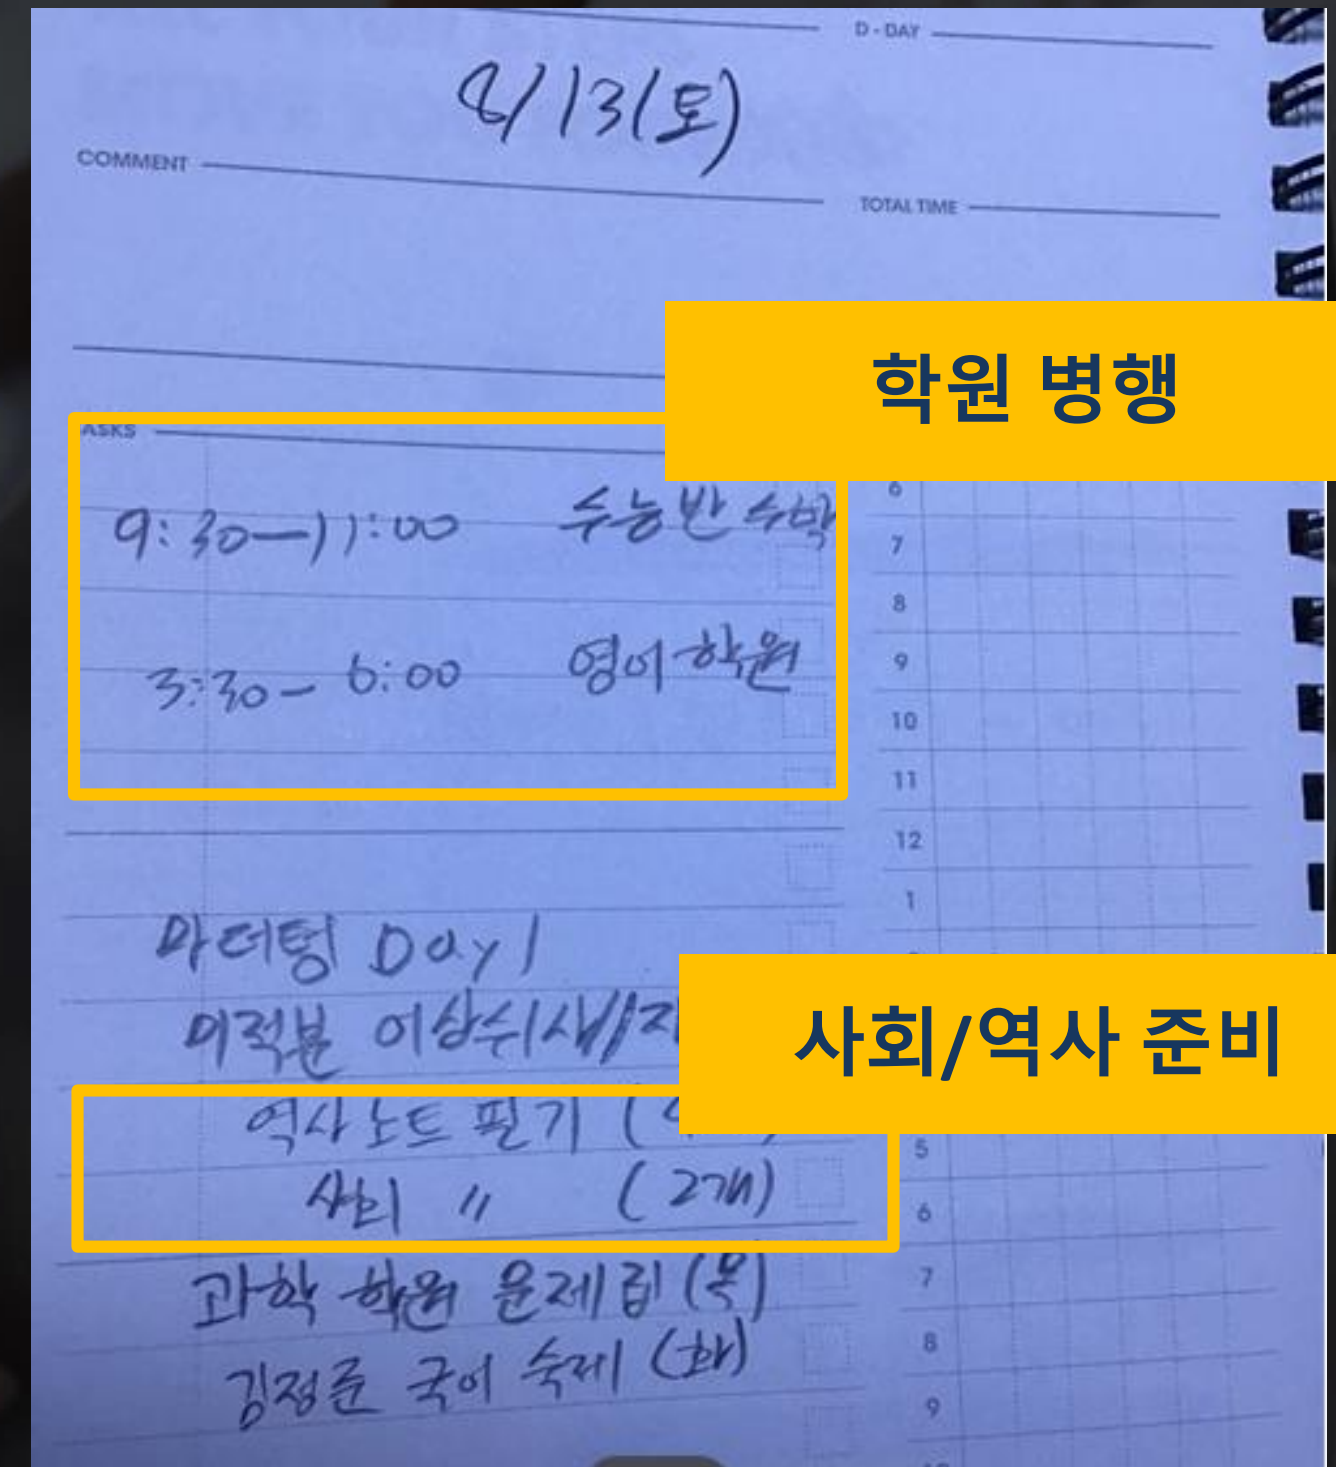 D-DAY
8/13(토)
COMMENT
TOTAL TIME
학원 병행
ASKS
6
9:30-11:00 수능반 수학
7
8
3:30- 6:00 영어학원
9
10
11
12
1
마더텅 Day 1
미적분
사회/역사 준비
역사노트 필기 (
5
사회 〃 (2개)
6
과학 학원 문제집 (목)
7
김정준 국어 숙제 (화)
8
9